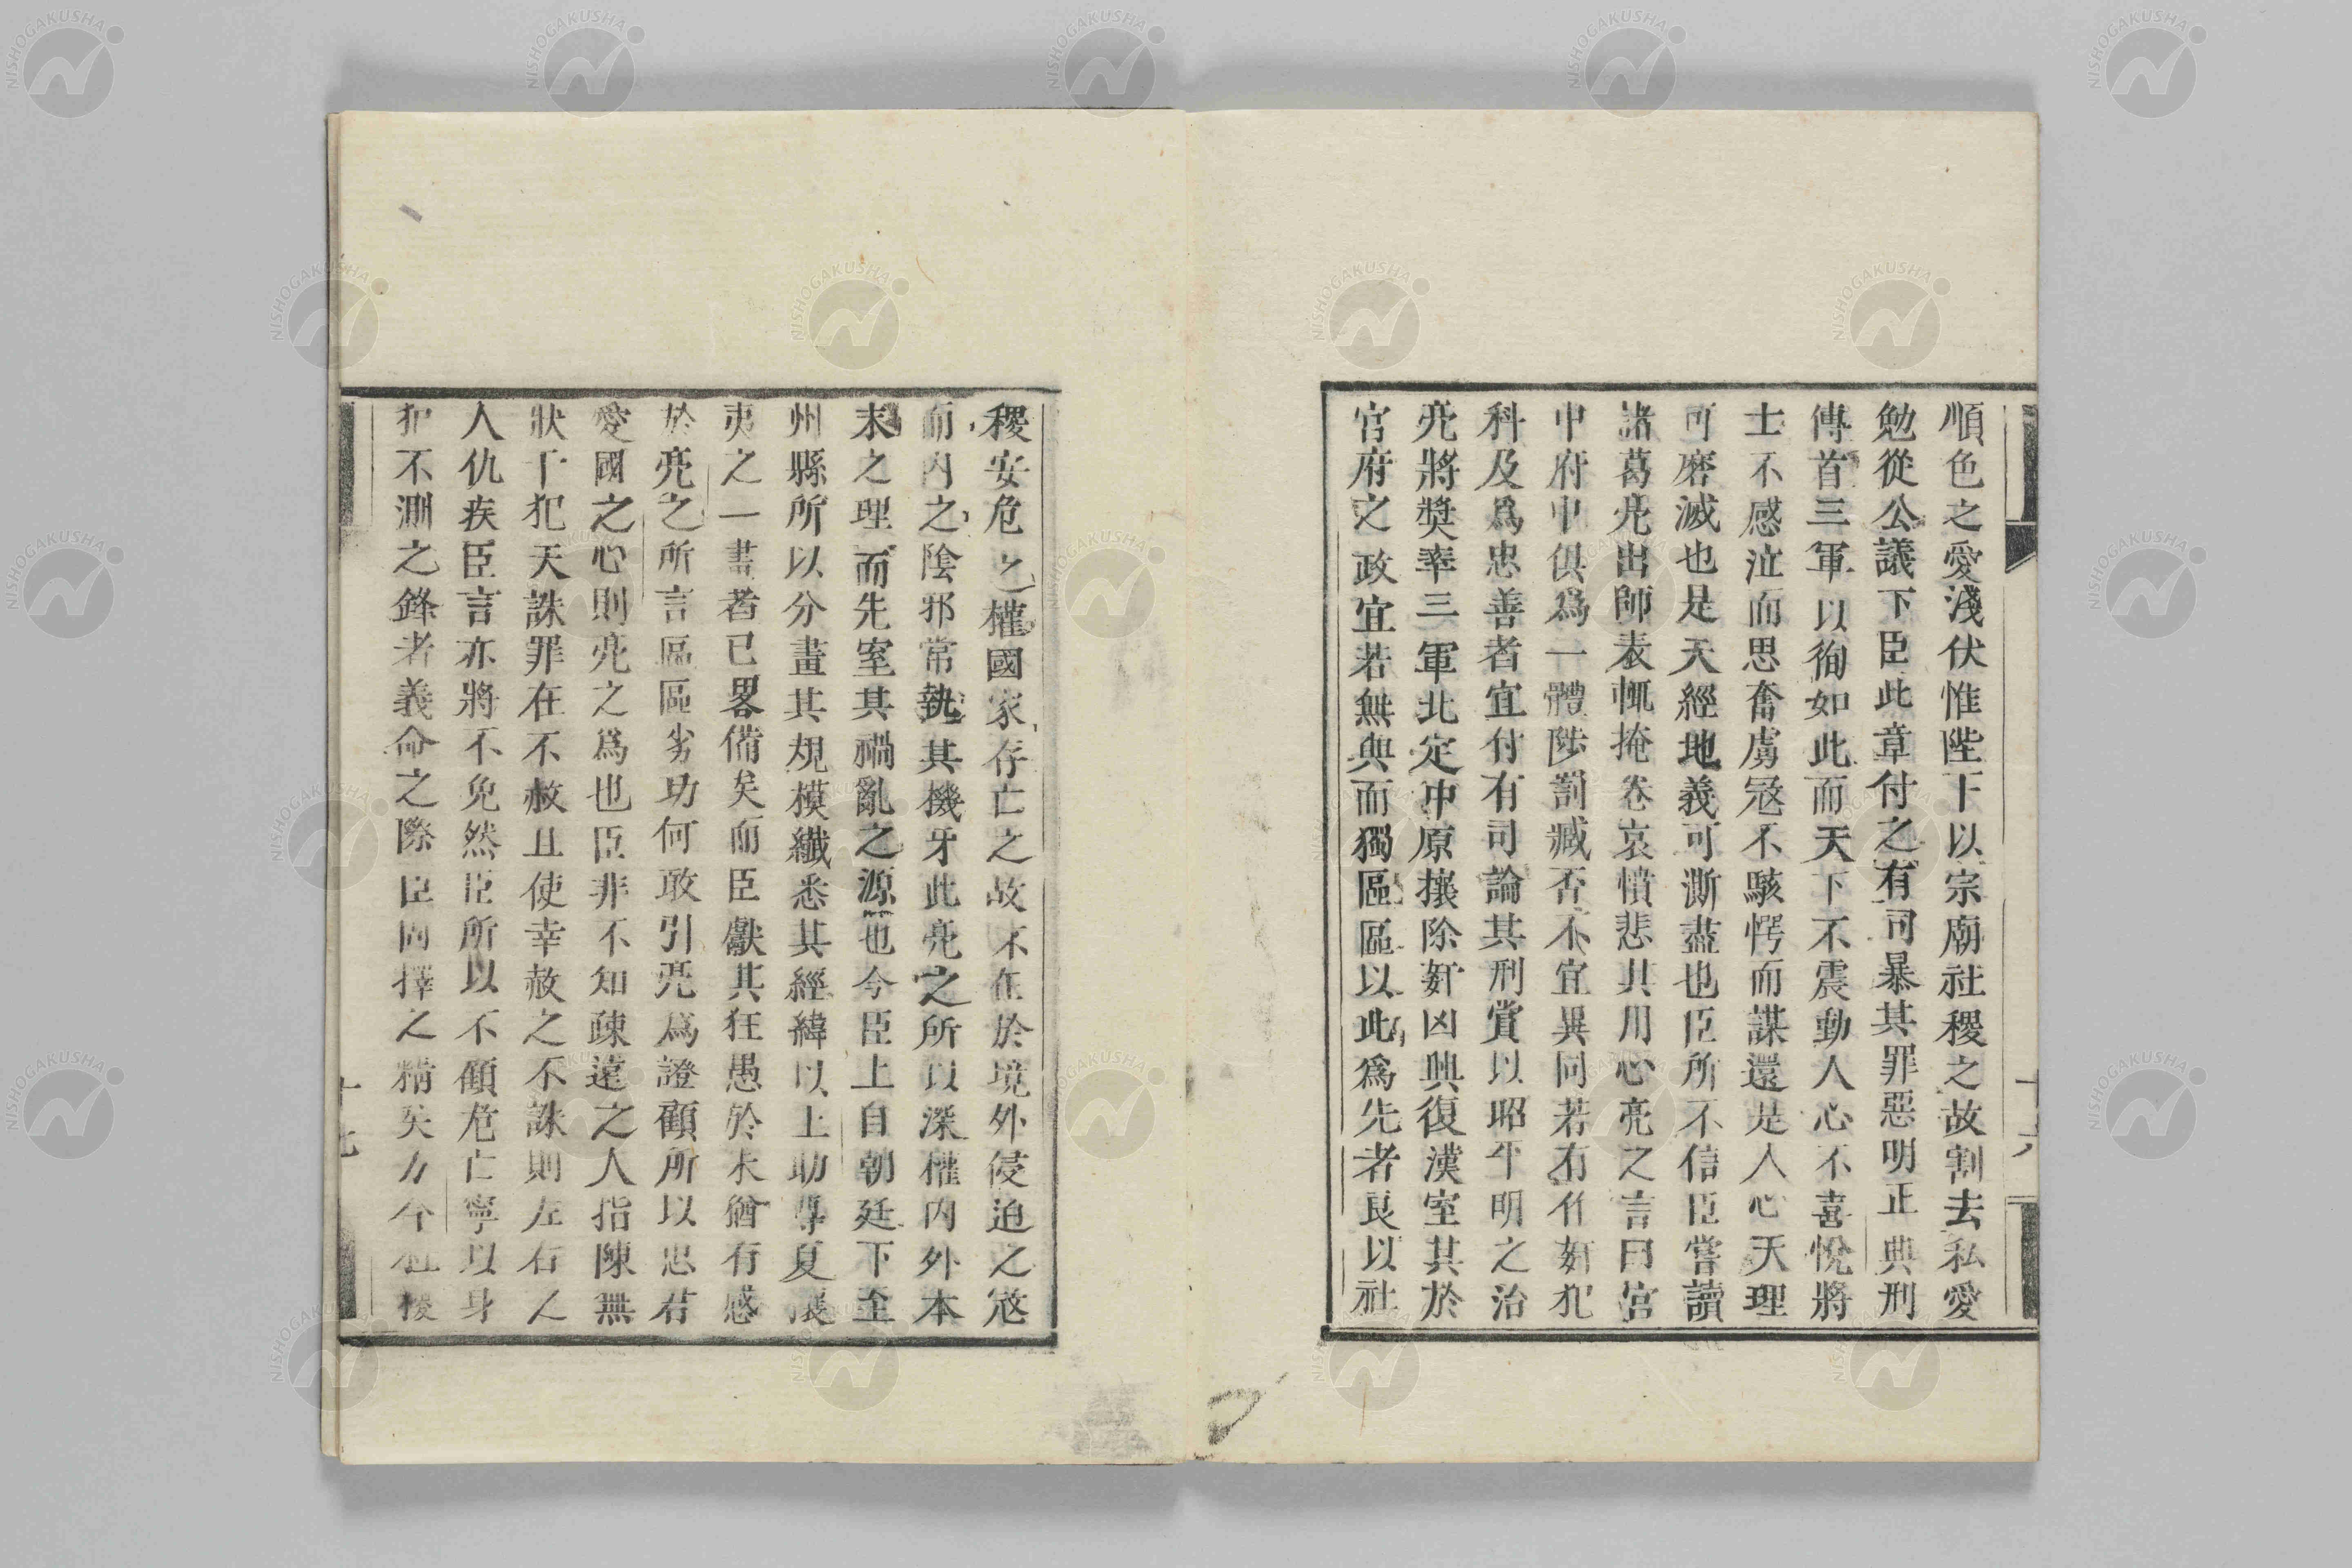 順色之愛淺伏惟陛下以宗廟社稷之故割去私愛
勉從公議下臣此章付之有司暴其罪惡明正典刑
傳首三軍以徇如此而天下不震動人心不喜悅將
士不感泣而思奮虜冦不駭愕而謀還是人心天理
可磨滅也是天經地義可澌盡也臣所不信臣嘗讀
諸葛亮出師表輒掩卷哀憤悲其用心亮之言曰宮
中府中俱爲一體陟罰臧否不宜異同若有作姧犯
科及爲忠善者宜付有司論其刑賞以昭平明之治
亮將奬率三軍北定中原攘除姧凶興復漢室其於
官府之政宜若無與而獨區區以此爲先者良以社
稷安危之權國家存亡之故不在於境外侵迫之冦
而内之陰邪常執其機牙此亮之所以深權内外本
末之理而先室其禍亂之源也今臣上自朝廷下至
州縣所以分畫其規模纖悉其經緯以上助尊夏攘
夷之一畫者已畧備矣而臣獻其狂愚於末猶有感
於亮之所言區區劣功何敢引亮爲證顧所以忠君
愛國之心則亮之爲也臣非不知疎遠之人指陳無
狀干犯天誅罪在不赦且使幸赦之不誅則左右之
人仇疾臣言亦將不免然臣所以不顧危亡寧以身
犯不測之鋒者義命之際臣固擇之精矣方今社稷
十六
十七
NISHOGAKUSHA